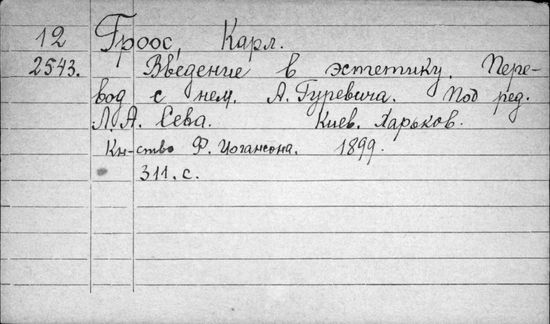 12 Гроос, Карл.
2543. Введение в эстетику. Пере-
вод с нем. А. Гуревича. Под ред.
Л. А. Сева. Киев. Харьков.
Кн-ство Ф. Иогансона. 1899.
311. с.